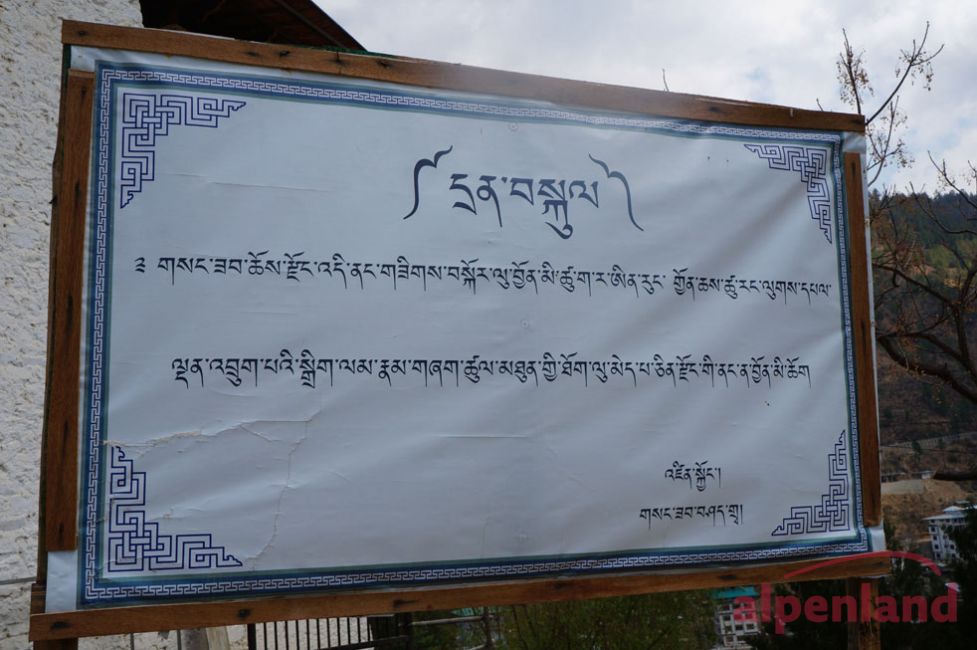 ༼དྲན་བསྐུལ༽
༣ གསང་ཟབ་ཆོས་རྫོང་འདི་ནང་གཟིགས་བསྐོར་ལུ་བྱོན་མི་ཚུ་ག་ར་ཨིན་རུང་ གྱོན་ཆས་ཚུ་རང་ལུགས་དཔལ་
ལྡན་འབྲུག་པའི་སྒྲིག་ལམ་རྣམ་གཞག་ཚུལ་མཐུན་གྱི་ཐོག་ལུ་མེད་པ་ཅིན་རྫོང་གི་ནང་ན་བྱོན་མི་ཆོག
འཛིན་སྐྱོང་།
གསང་ཟབ་བཤད་གྲྭ།
alpenland